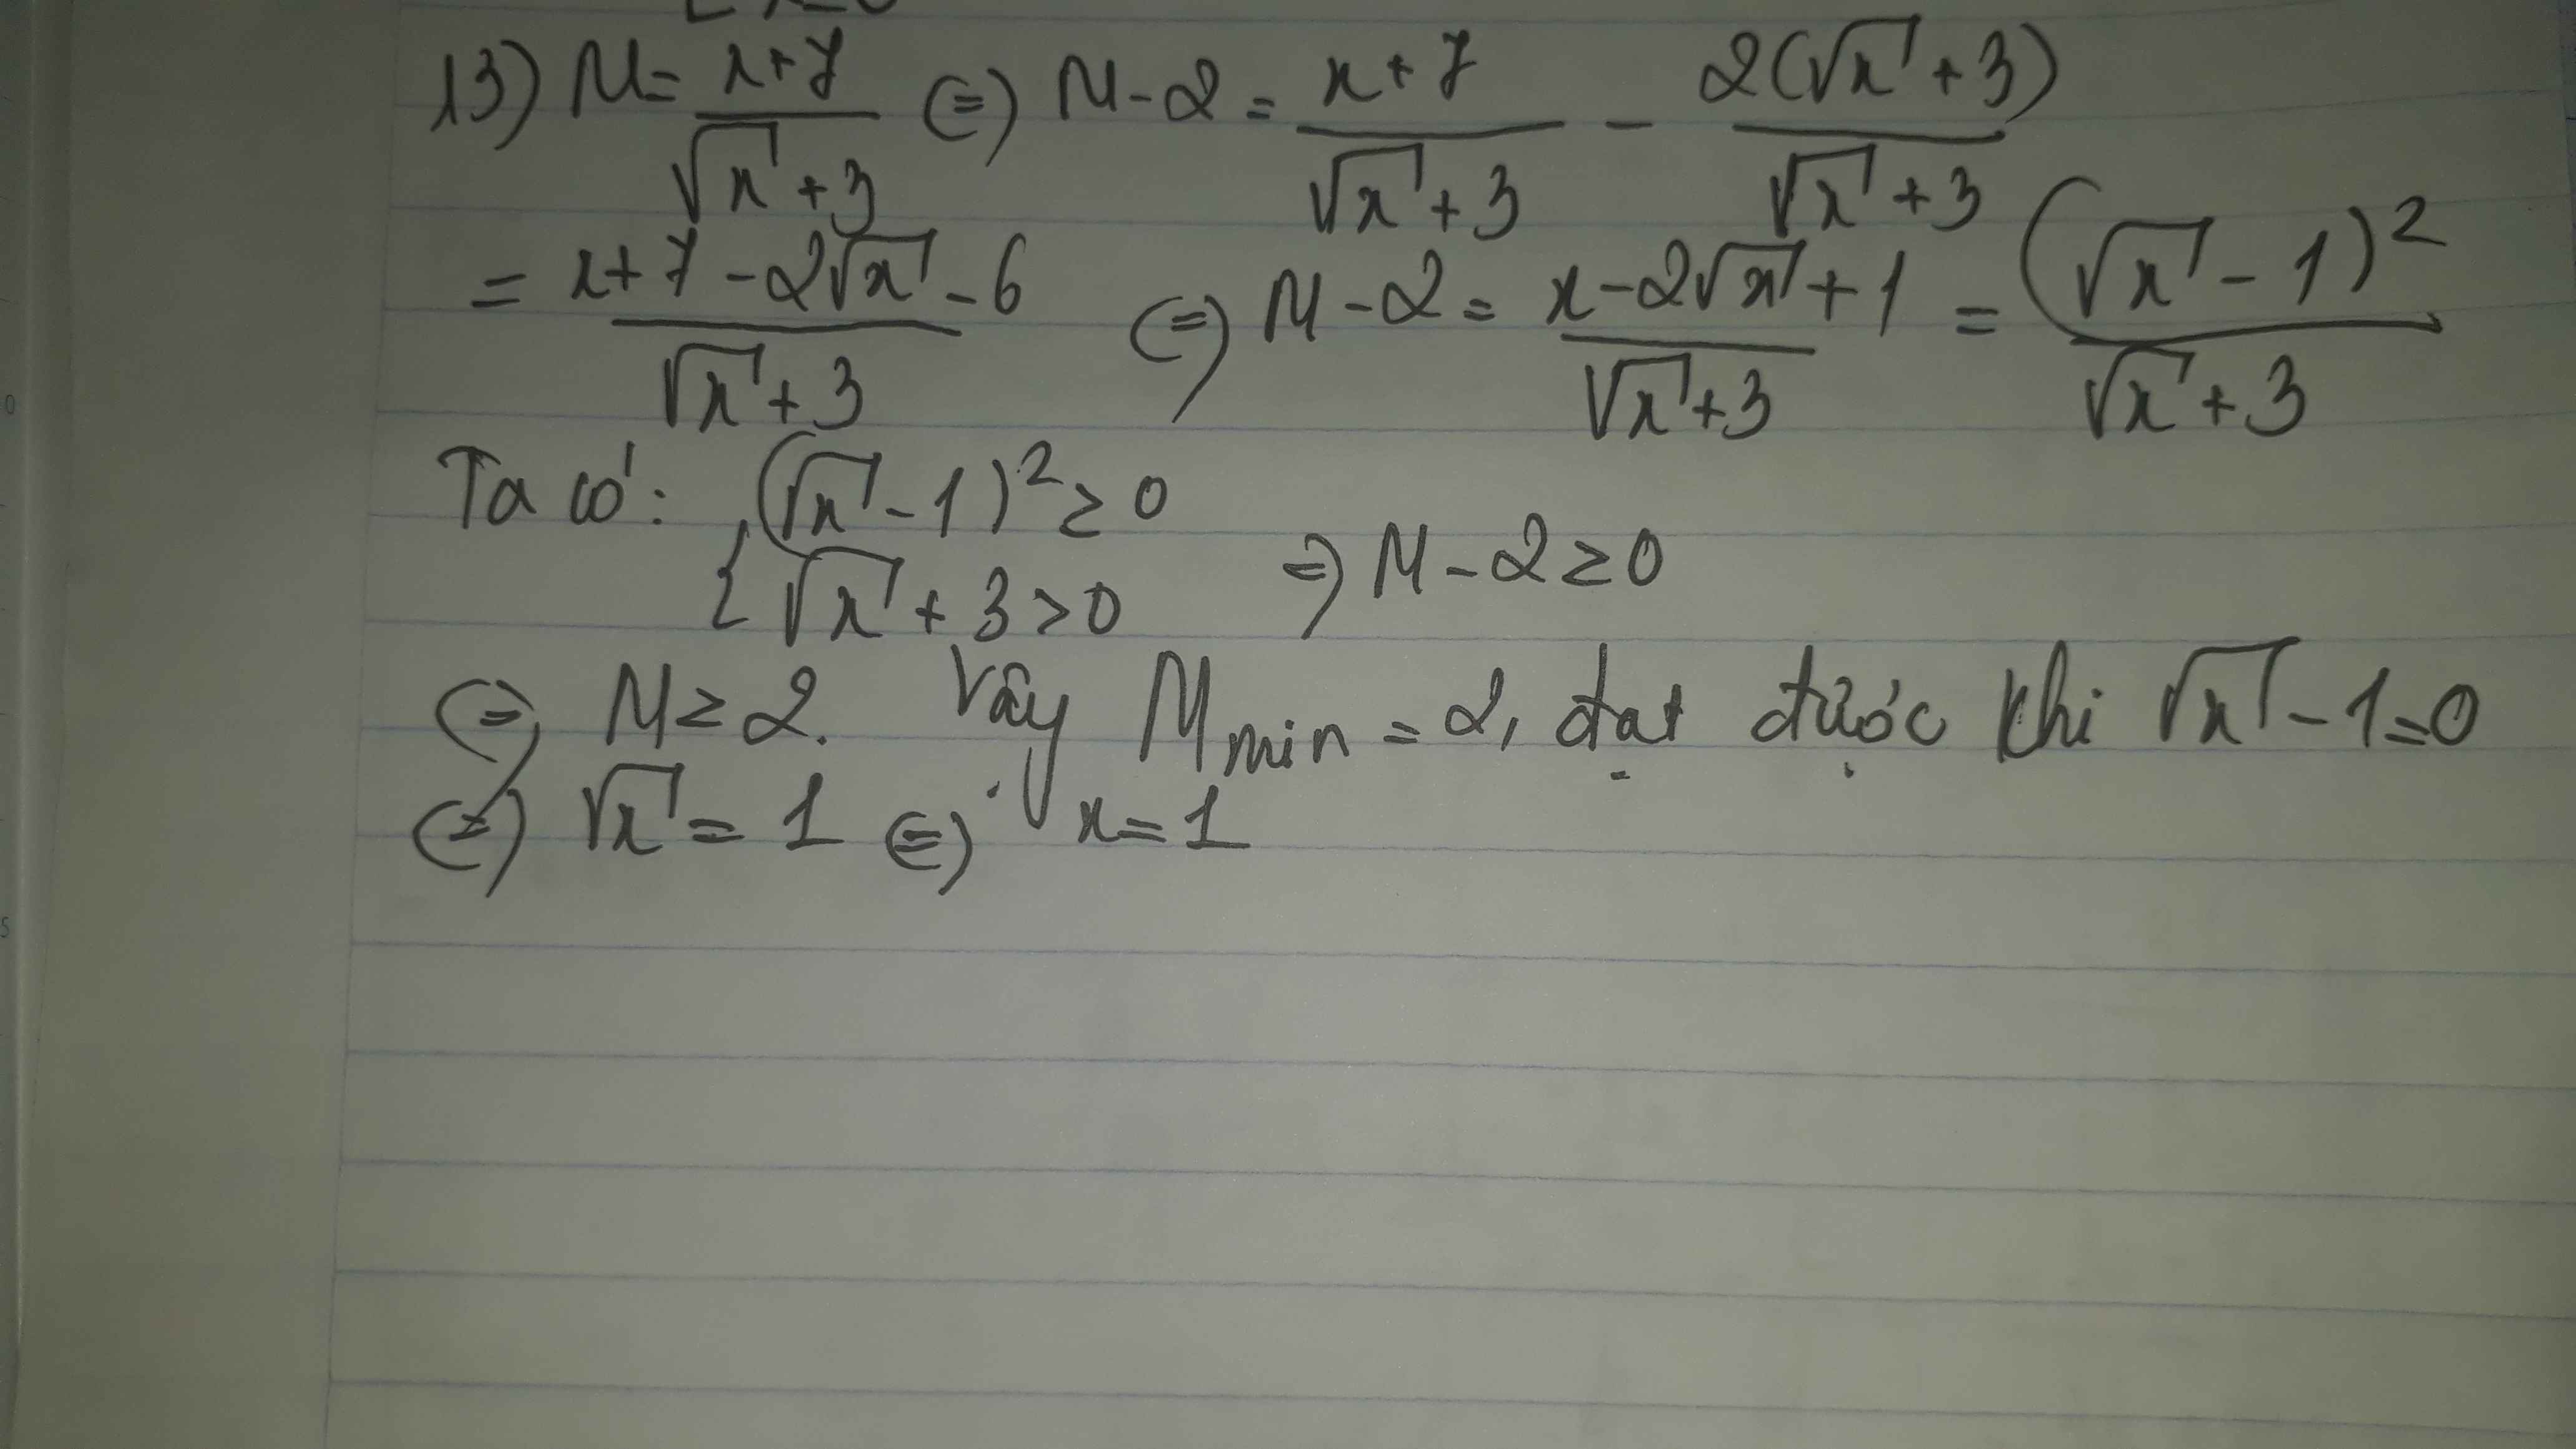 13) M = \frac{x+7}{\sqrt{x}+3} ⇔ M - 2 = \frac{x+7}{\sqrt{x}+3} - \frac{2(\sqrt{x}+3)}{\sqrt{x}+3}
= \frac{x+7-2\sqrt{x}-6}{\sqrt{x}+3} ⇔ M - 2 = \frac{x-2\sqrt{x}+1}{\sqrt{x}+3} = \frac{(\sqrt{x}-1)^2}{\sqrt{x}+3}
Ta có: { (\sqrt{x}-1)^2 ≥ 0
\sqrt{x}+3 > 0 ⇒ M - 2 ≥ 0
⇔ M ≥ 2. Vậy M_{min} = 2, đạt được khi \sqrt{x} - 1 = 0
⇔ \sqrt{x} = 1 ⇔ x = 1